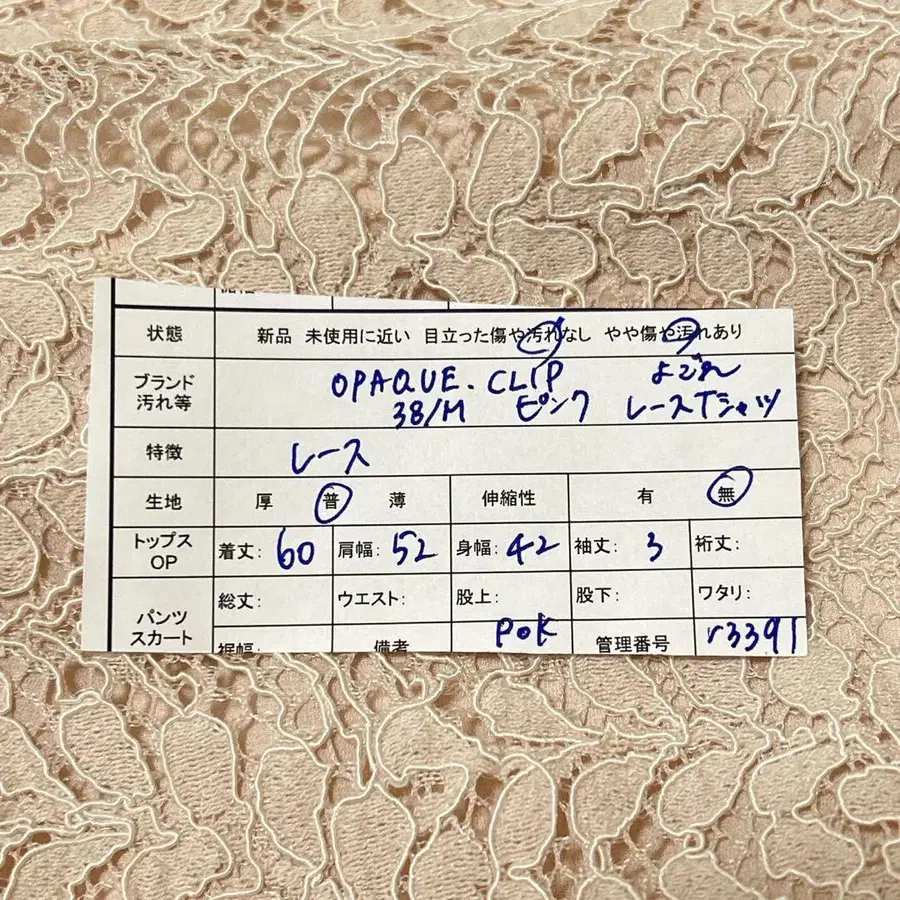 状態 新品 未使用に近い 目立った傷や汚れなし やや傷や汚れあり
ブランド 汚れ等 OPAQUE.CLIP よごれ
38/M ピンク レースTシャツ
特徴 レース
生地 厚 普 薄 伸縮性 有 無
トップス OP 着丈: 60 肩幅: 52 身幅: 42 袖丈: 3 裄丈:
パンツ スカート 総丈: ウエスト: 股上: 股下: ワタリ:
裾幅: 備考 POK 管理番号 r3391